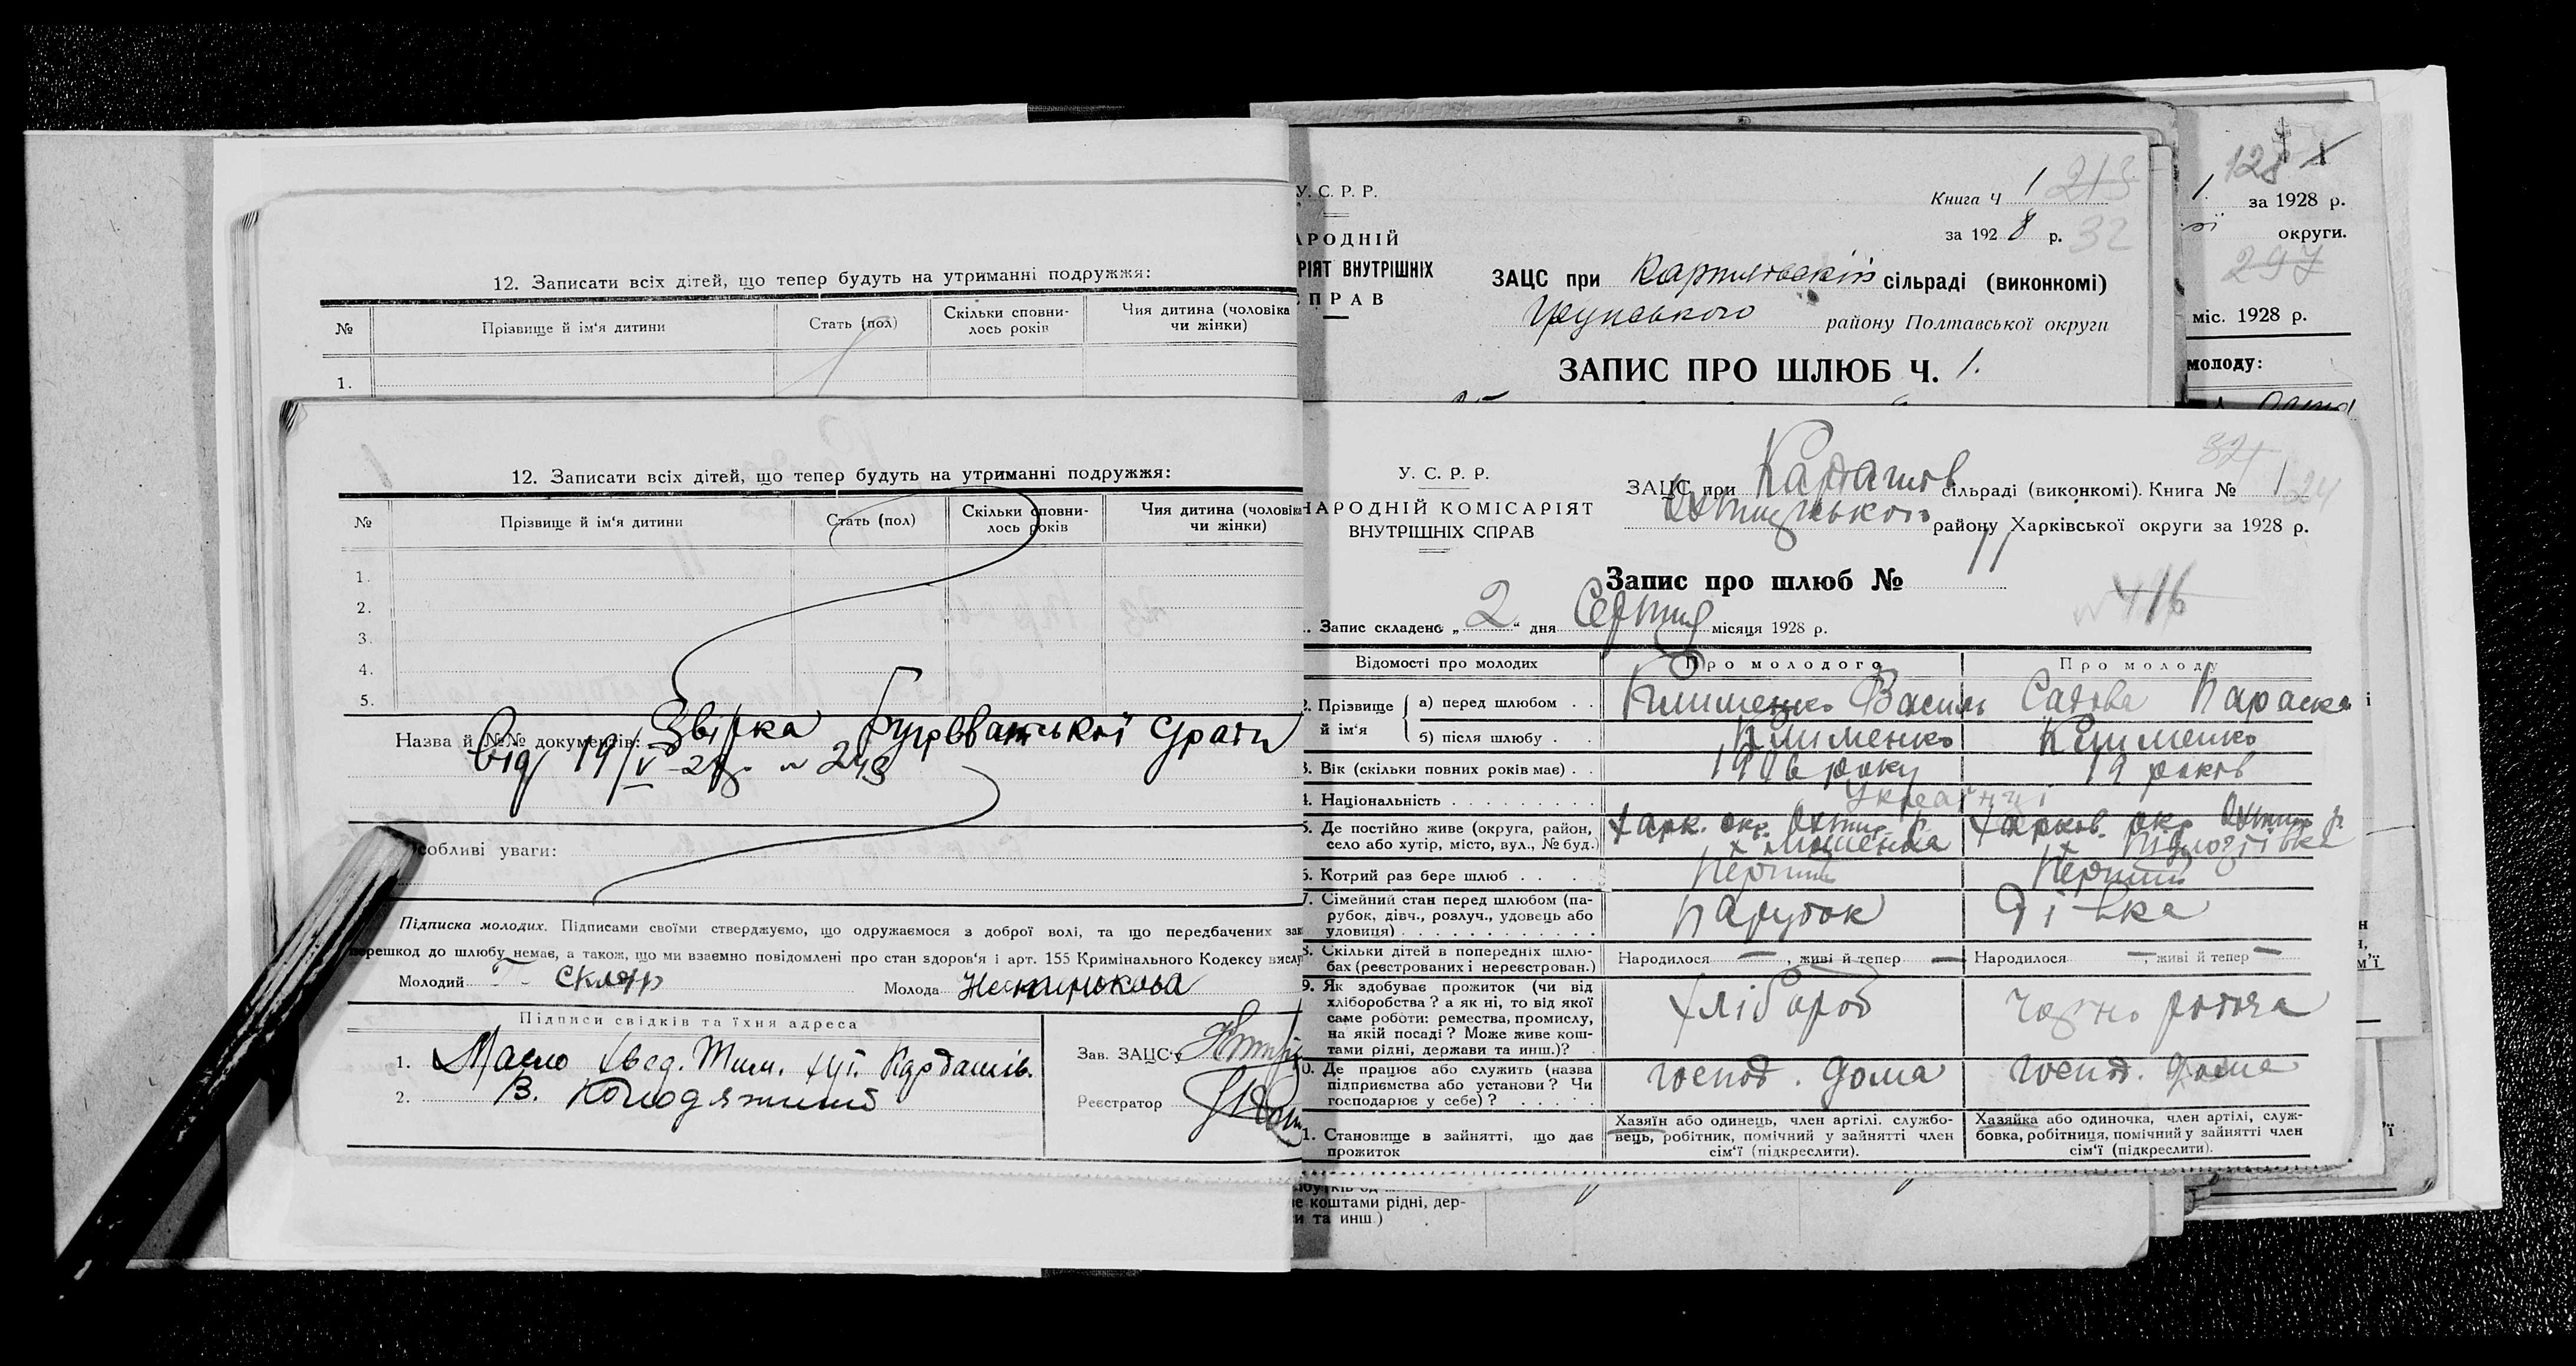 12. Записати всіх дітей, що тепер будуть на утриманні подружжя:
№ Прізвище й ім'я дитини Стать (пол) Скільки сповни-лось років Чия дитина (чоловіка чи жінки)
1.
12. Записати всіх дітей, що тепер будуть на утриманні подружжя:
№ Прізвище й ім'я дитини Стать (пол) Скільки сповни-лось років Чия дитина (чоловіка чи жінки)
1.
2.
3.
4.
5.
Назва й №№ документів: Звірка
від 19/V-28р. № 243
собливі уваги:
Підписка молодих. Підписами своїми стверджуємо, що одружаємося з доброї волі, та що передбачених зак
перешкод до шлюбу немає, а також, що ми взаємно повідомлені про стан здоров'я і арт. 155 Кримінального Кодексу вислу
Молодий Скляр Молода
Підписи свідків та їхня адреса
1. Масло
2. В. Колодяжний
Зав. ЗАЦС'у
Реєстратор
У. С. Р. Р.
АРОДНІЙ
РІЯТ ВНУТРІШНІХ
ПРАВ
Книга Ч 1 213
за 1928 р. 32
ЗАЦС при сільраді (виконкомі)
району Полтавської округи
ЗАПИС ПРО ШЛЮБ Ч. 1.
128 1
1. за 1928 р.
округи.
297
міс. 1928 р.
молоду:
У. С. Р. Р.
НАРОДНІЙ КОМІСАРІЯТ
ВНУТРІШНІХ СПРАВ
ЗАЦС при Кардашів сільраді (виконкомі). Книга № 1 24
району Харківської округи за 1928 р.
Запис про шлюб № 11
416
. Запис складено „2" дня Серпня місяця 1928 р.
Відомості про молодих Про молодого Про молоду
2. Прізвище й ім'я а) перед шлюбом . . Клименко Василь Параска
б) після шлюбу . . Клименко Клименко
3. Вік (скільки повних років має) . . 1906 року 19 років
4. Національність Українці
5. Де постійно живе (округа, район, село або хутір, місто, вул., № буд.) Харк. окр. Охтир. р. Харків. окр. Охтир р.
6. Котрий раз бере шлюб . . Перший Перший
7. Сімейний стан перед шлюбом (па-рубок, дівч., розлуч., удовець або удовиця) Парубок Дівка
8. Скільки дітей в попередніх шлю-бах (реєстрованих і нереєстрован.) Народилося —, живі й тепер — Народилося —, живі й тепер —
9. Як здобуває прожиток (чи від хліборобства? а як ні, то від якої саме роботи: ремества, промислу, на якій посаді? Може живе кош-тами рідні, держави та инш.)? Хлібороб
0. Де працює або служить (назва підприємства або установи? Чи господарює у себе)? господ. дома господ. дома
1. Становище в зайнятті, що дає прожиток Хазяїн або одинець, член артілі, службо-вець, робітник, помічний у зайнятті член сім'ї (підкреслити). Хазяйка або одиночка, член артілі, служ-бовка, робітниця, помічний у зайнятті член сім'ї (підкреслити).
коштами рідні, дер-
и та инш.)